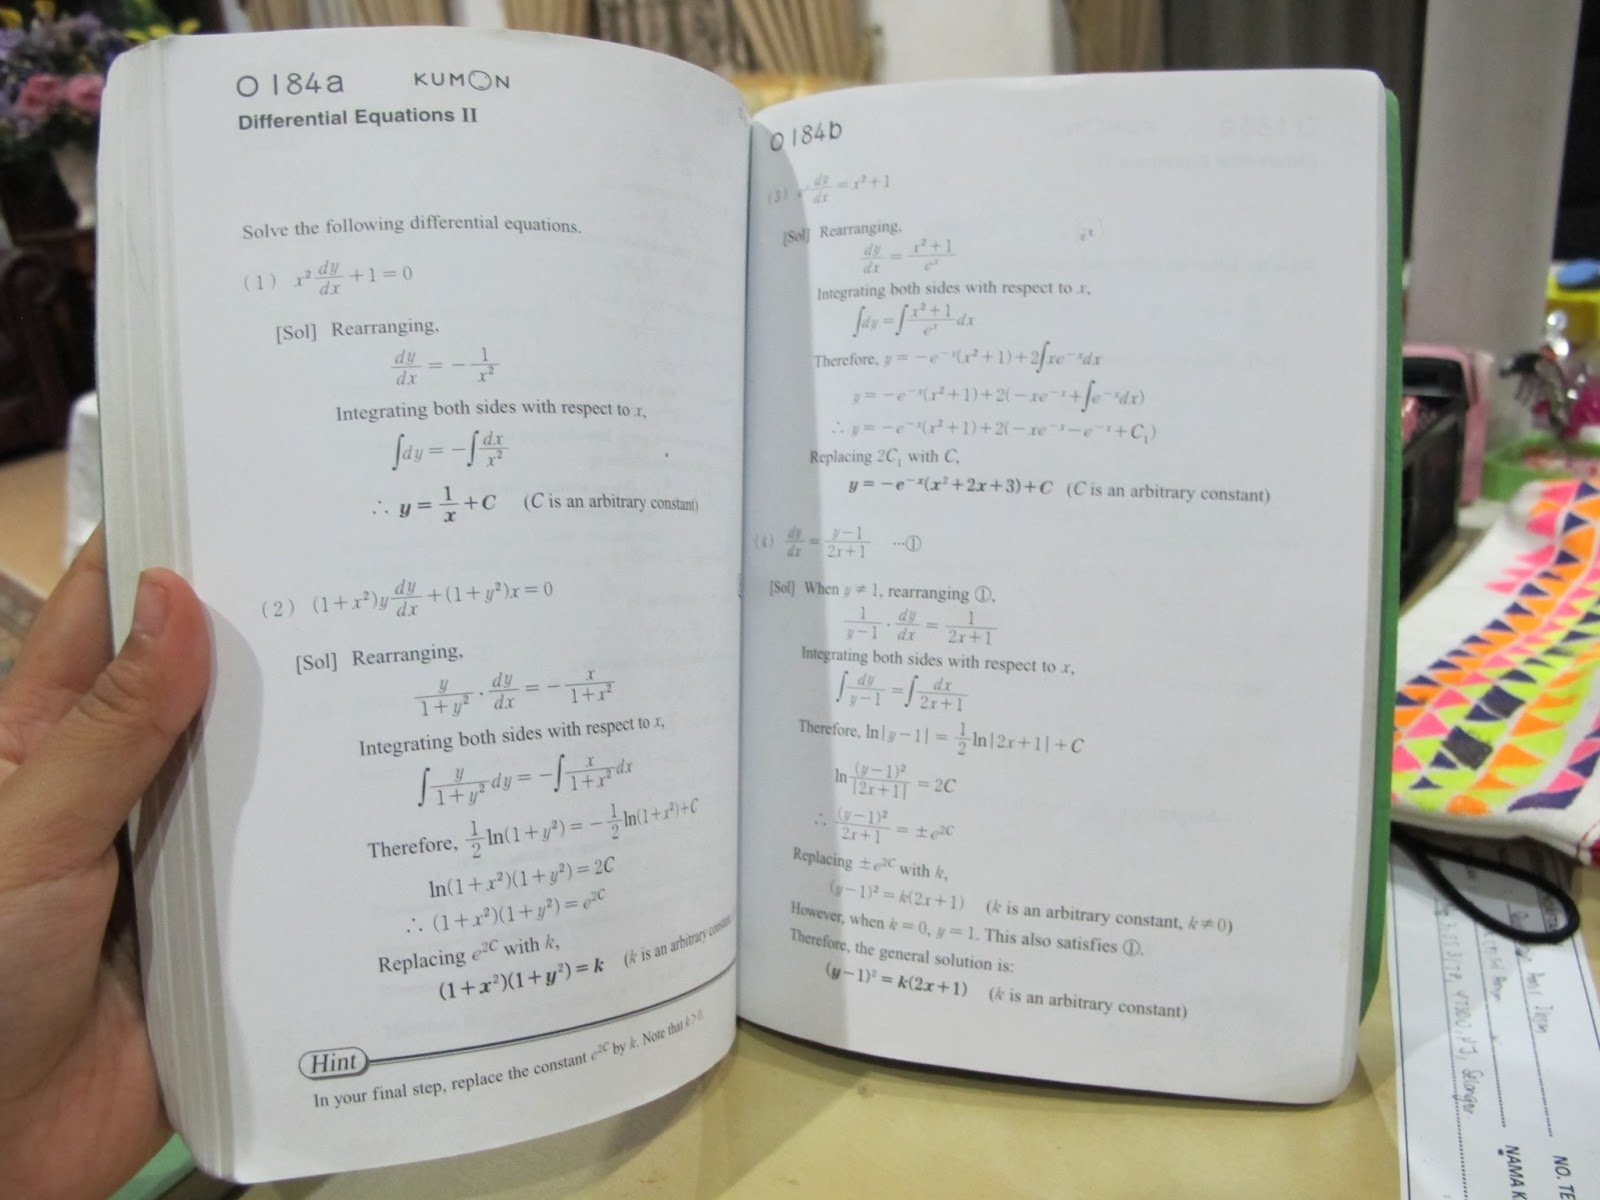 O 184a KUMON
Differential Equations II
Solve the following differential equations.
(1) x² dy/dx + 1 = 0
[Sol] Rearranging,
dy/dx = − 1/x²
Integrating both sides with respect to x,
∫dy = −∫dx/x²
∴ y = 1/x + C (C is an arbitrary constant)
(2) (1+x²)y dy/dx + (1+y²)x = 0
[Sol] Rearranging,
y/(1+y²) · dy/dx = − x/(1+x²)
Integrating both sides with respect to x,
∫ y/(1+y²) dy = −∫ x/(1+x²) dx
Therefore, 1/2 ln(1+y²) = − 1/2 ln(1+x²)+C
ln(1+x²)(1+y²) = 2C
∴ (1+x²)(1+y²) = e²ᶜ
Replacing e²ᶜ with k,
(1+x²)(1+y²) = k (k is an arbitrary
Hint
In your final step, replace the constant e²ᶜ by k. Note that k>0.
O 184b
(3) dy/dx = x²+1
[Sol] Rearranging,
dy/dx = (x²+1)/eˣ
Integrating both sides with respect to x,
∫dy = ∫(x²+1)/eˣ dx
Therefore, y = −e⁻ˣ(x²+1)+2∫xe⁻ˣdx
y = −e⁻ˣ(x²+1)+2(−xe⁻ˣ+∫e⁻ˣdx)
∴ y = −e⁻ˣ(x²+1)+2(−xe⁻ˣ−e⁻ˣ+C₁)
Replacing 2C₁ with C,
y = −e⁻ˣ(x²+2x+3)+C (C is an arbitrary constant)
(4) dy/dx = (y−1)/(2x+1) ···①
[Sol] When y ≠ 1, rearranging ①,
1/(y−1) · dy/dx = 1/(2x+1)
Integrating both sides with respect to x,
∫ dy/(y−1) = ∫ dx/(2x+1)
Therefore, ln|y−1| = 1/2 ln|2x+1| + C
ln (y−1)²/|2x+1| = 2C
∴ (y−1)²/(2x+1) = ±e²ᶜ
Replacing ±e²ᶜ with k,
(y−1)² = k(2x+1) (k is an arbitrary constant, k≠0)
However, when k = 0, y = 1. This also satisfies ①.
Therefore, the general solution is:
(y−1)² = k(2x+1) (k is an arbitrary constant)
NAMA K
NO. TE